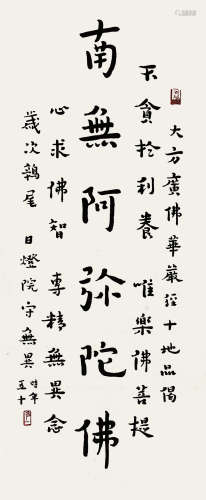 大方廣佛華嚴經十地品偈
不貪於利養 唯樂佛菩提
南無阿彌陀佛
心求佛智 專精無異念
歲次鶉尾 日燈院守無異
時年五十